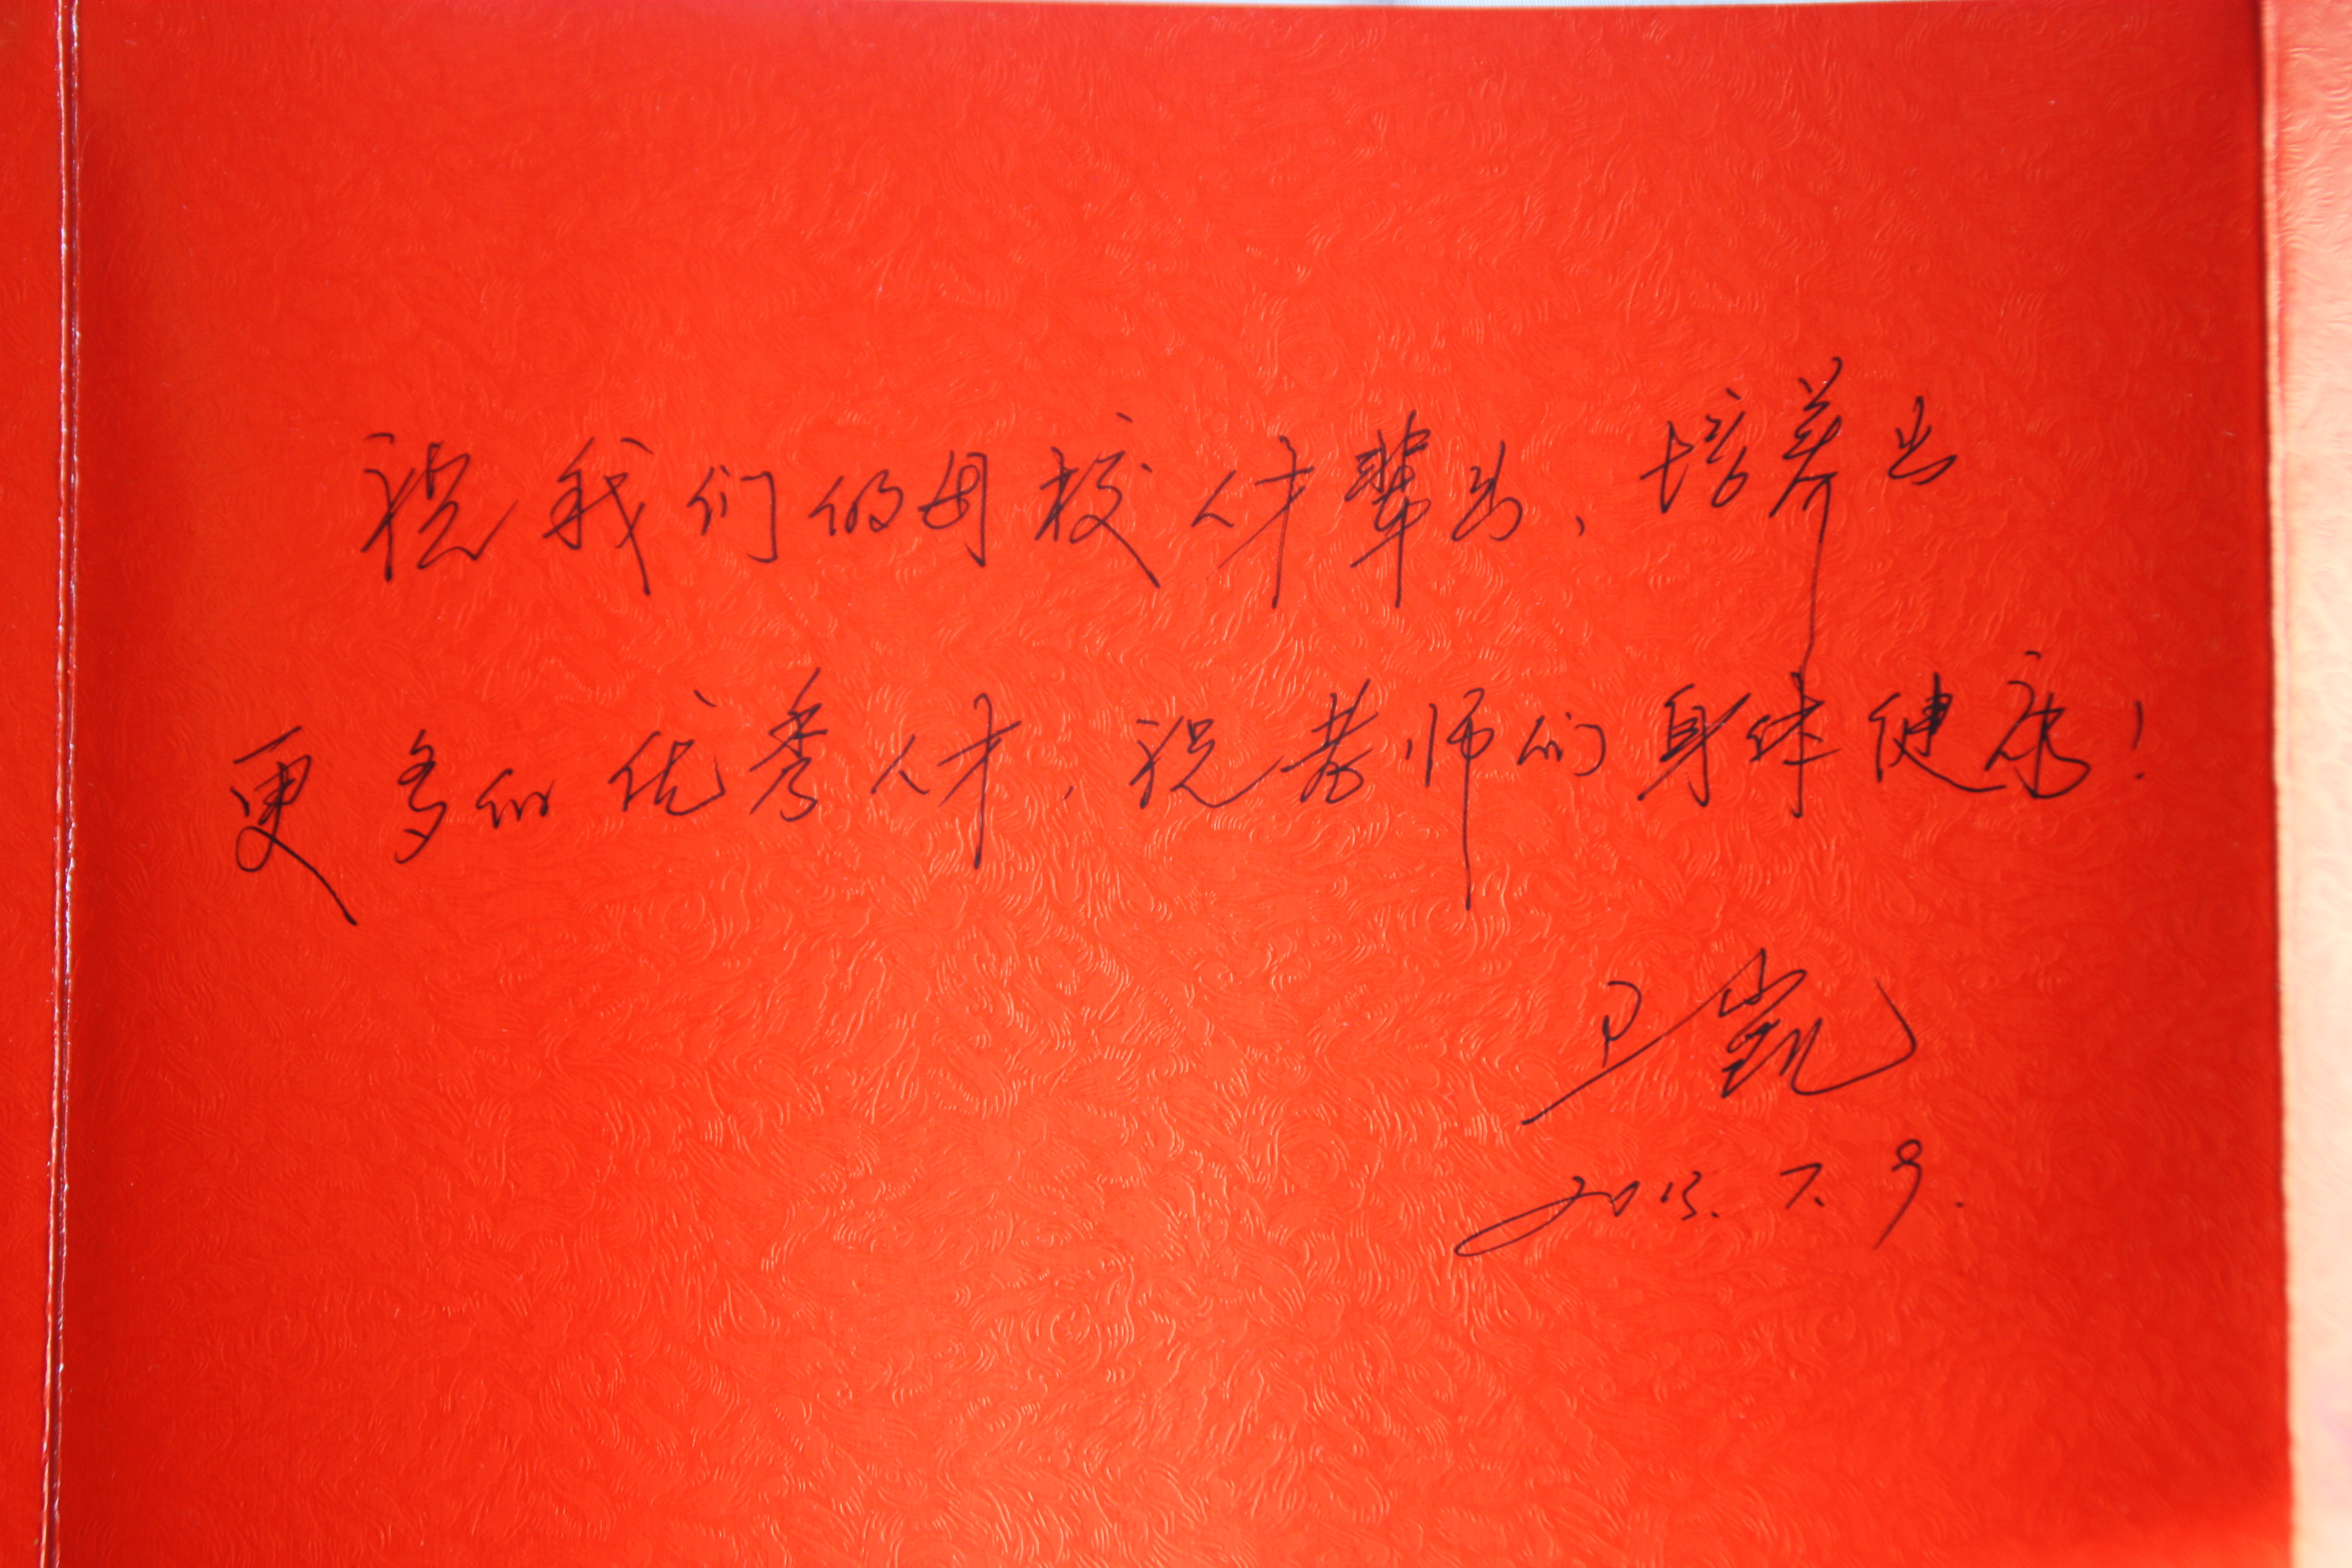 祝我们的母校人才辈出、培养出
更多的优秀人才，祝老师们身体健康！
卫凯
2013.7.9.